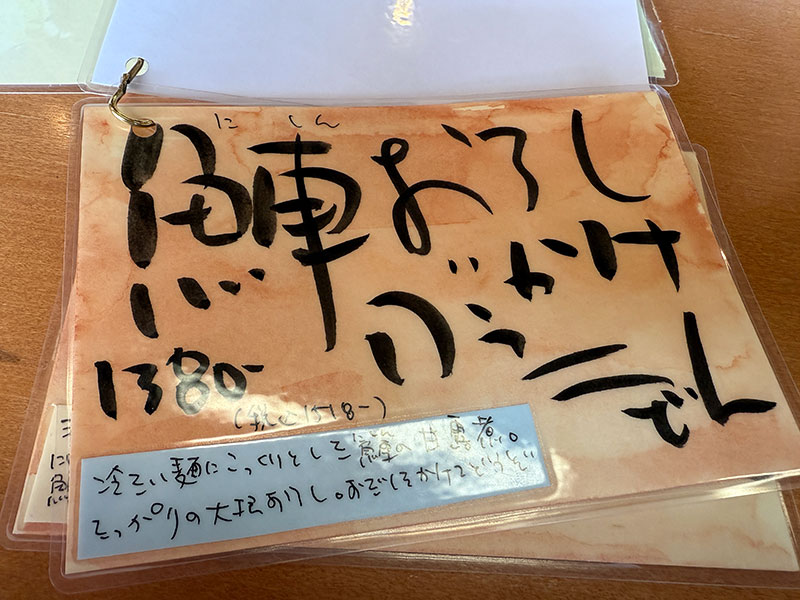 にしん
鰊おろし
ぶっかけ
うどん
1380-
(税込1518-)
冷たい麺にこっくりとした鰊の甘露煮。
さっぱりの大根おろし。おだしをかけてどうぞ